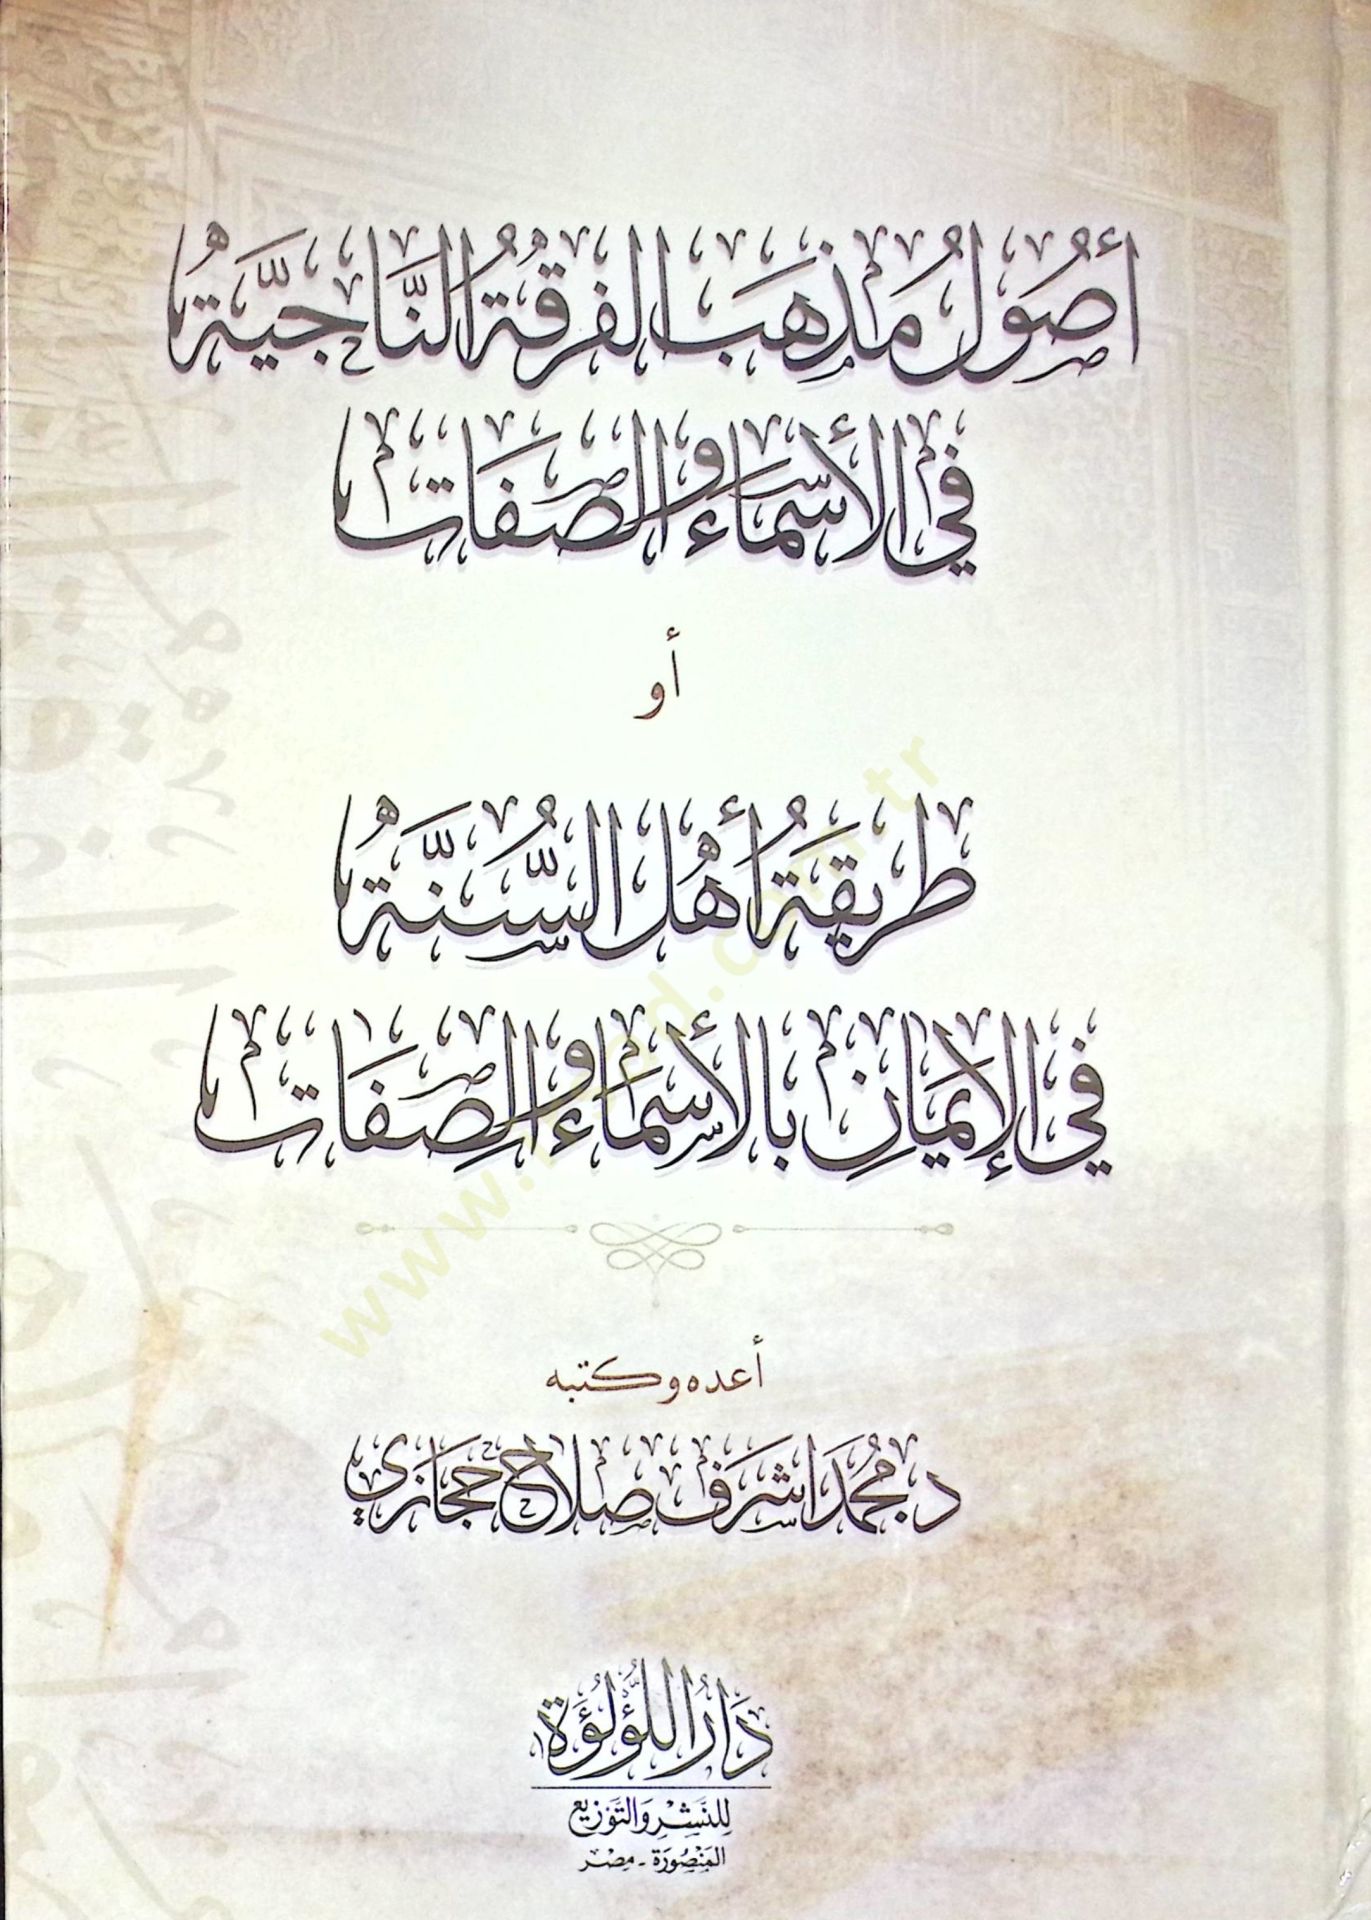 أصول مذهب الفرقة الناجية
في الأسماء والصفات
أو
طريقة أهل السنة
في الإيمان بالأسماء والصفات
أعده وكتبه
د. محمد أشرف صلاح حجازي
دار اللؤلؤة
للنشر والتوزيع
المنصورة - مصر